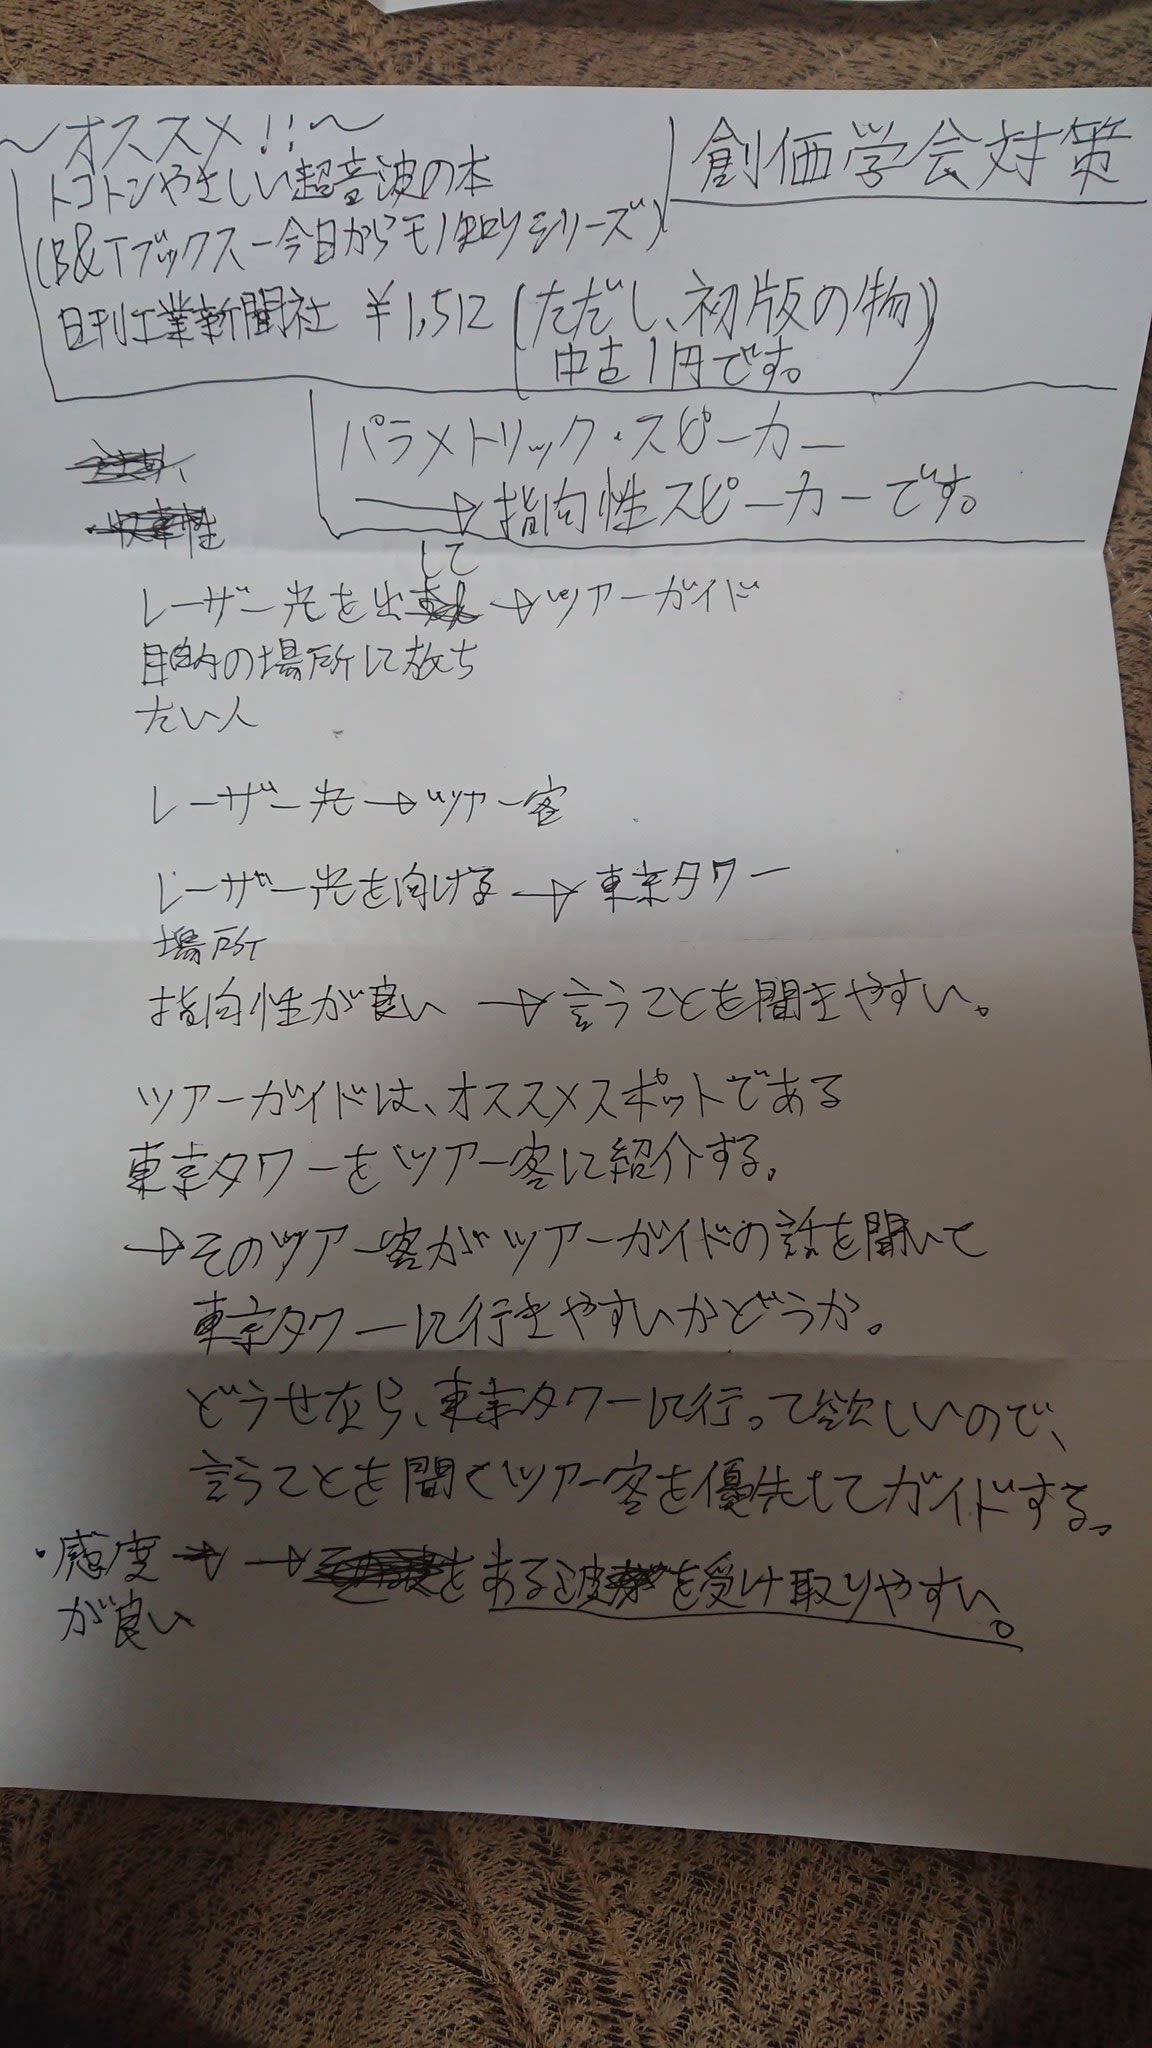 創価学会対策
~オススメ!!~
トコトンやさしい超音波の本
(B&Tブックスー今日からモノ知りシリーズ)
日刊工業新聞社 ¥1,512 (ただし、初版の物)
中古1円です。
パラメトリック・スピーカー
→指向性スピーカーです。
して
レーザー光を出 →ツアーガイド
目的の場所に放ち
たい人
レーザー光→ツアー客
レーザー光を向ける →東京タワー
場所
指向性が良い →言うことを聞きやすい。
ツアーガイドは、オススメスポットである
東京タワーをツアー客に紹介する。
→そのツアー客がツアーガイドの話を聞いて
東京タワーに行きやすいかどうか。
どうせなら、東京タワーに行って欲しいので、
言うことを聞くツアー客を優先してガイドする。
・感度 → → をある波を受け取りやすい。
が良い